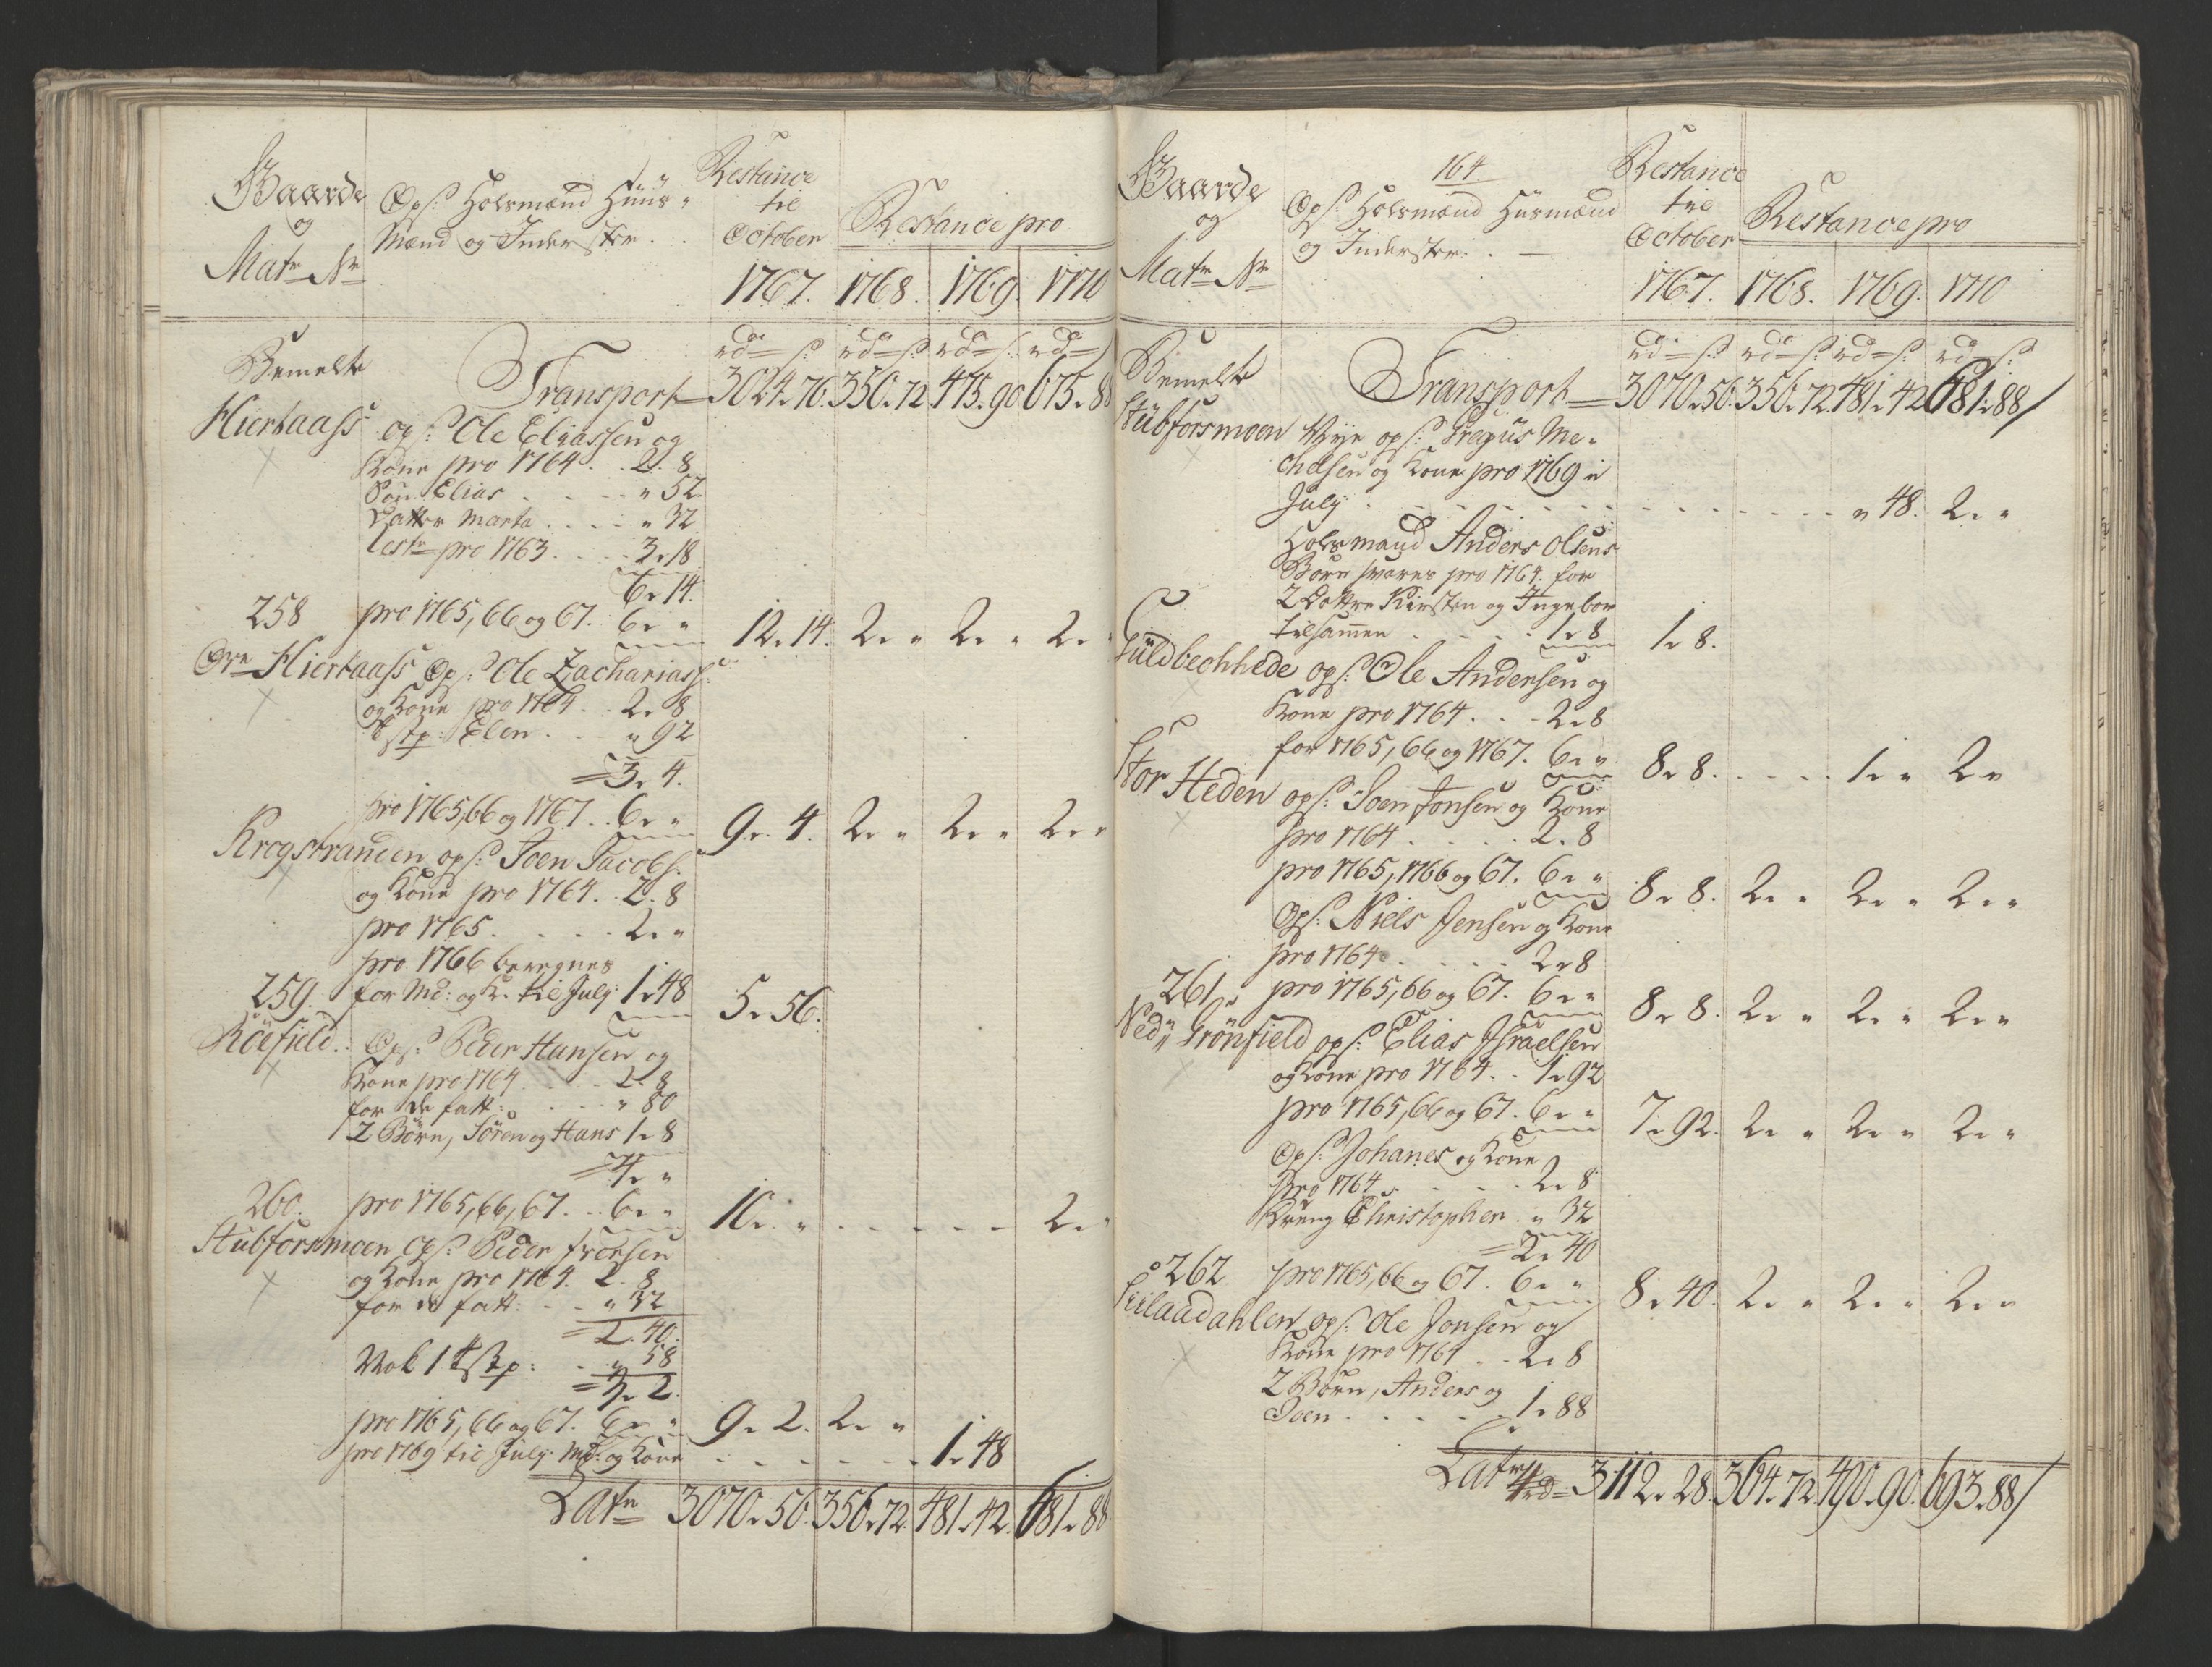 Gaarde
og
Matr Nr
Ops: Holsmænd Huus-
Mænd og Inderster.
Restance
til
October
1767.
Restance pro
1768. 1769. 1770
rdr ß: rdr ß: rdr ß: rdr
Bemelte
Transport 3024. 76. 350. 72 475. 90 675. 88
Hiertaass ops: Ole Eliassen og
Kone pro 1764 . . 2. 8
Søn Elias . . . . " 52.
Datter Marta . . . . " 32
Rest pro 1763 . . . . 3. 18
6. 14.
258 pro 1765, 66 og 67. 6. " 12. 14. 2. " 2. " 2.
Øvre Hiertaass Ops: Ole Zachariass:
og Kone pro 1764 . . 2. 8
Elen . . . " 92
3. 4.
pro 1765, 66 og 1767. . 6. " 9. 4. 2. " 2. " 2. "
Krogstranden ops: Joen Jacobs:
og Kone pro 1764. . 2. 8
pro 1765. . . . . 2. "
pro 1766 beregnes
259. for Md: og K. til July 1. 48 5. 56.
Röefield. Ops: Peder Hansen og
Kone pro 1764 . . . . 2. 8
for de fatt: . . . . " 80
2 Børn, Sören og Hans 1. 8
4. "
260. pro 1765, 66, 67. . . 6. " 10. " . . . . . . 2. "
Stubforsmoen Ops: Peder
og Kone pro 1764. 2. 8
for de fatt: . . . " 32
2. 40.
. . " 58
3. 2.
pro 1765, 66 og 67. 6. " 9. 2. 2. "
pro 1769 til July Md: og Kone . . . . . . 1. 48
Latr 3070. 56. 356. 72. 481. 42. 681. 88
Gaarde
og
Matr Nr
164
Ops: Holsmænd Husmænd
og Inderster. . —
Restance
til
October
1767.
Restance pro
1768. 1769. 1770
rdr ß: rdr ß: rdr ß: rdr ß:
Bemelte
Transport 3070. 56. 356. 72. 481. 42 681. 88/
Stubforsmoen Nye ops: Me-
og Kone pro 1769 i
July . . . . . . . . . . . . " 48. 2. "
Holsmand Anders Olsens
Børn svares pro 1764. for
2 Dottre Kirsten og Ingebor
tilsammen . . . . . 1. 8 1. 8.
Guldbechhede ops: Ole Andersen og
Kone pro 1764 . . . 2. 8
for 1765, 66 og 1767. 6. " 8. 8. . . . . 1. " 2. "
Stor Heden ops: Joen Jonsen og Kone
pro 1764 . . . . 2. 8
pro 1765, 1766 og 67. 6. " 8. 8. 2. " 2. " 2. "
Ops: Niels Jensen og Kone
pro 1764 . . . . . 2. 8
261. pro 1765, 66 og 67. 6. " 8. 8. 2. " 2. " 2. "
Ned: Grönfield ops: Elias Israelsen
og Kone pro 1764. . 1. 92
pro 1765, 66 og 67. 6. " 7. 92. 2. " 2. " 2. "
Ops: Johanes og Kone
pro 1764 . . . . 2. 8
Dreng Christopher . " 32
2. 40
262 pro 1765, 66 og 67. 6. " 8. 40. 2. " 2. " 2. "
ops: Ole Jonsen og
Kone pro 1764 . . 2. 8
2 Børn, Anders og
Joen . . . . . . 1. 88
Latr 3112. 28. 364. 72. 490. 90. 693. 88/